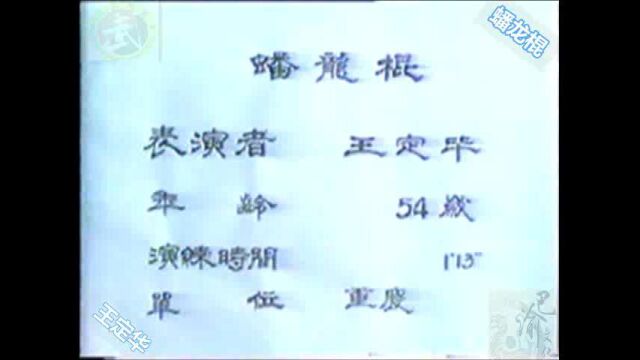 蟠龙棍
武
蟠龍棍
表演者 王定华
年齡 54歲
演練時間 1'13"
單位 重庆
王定华